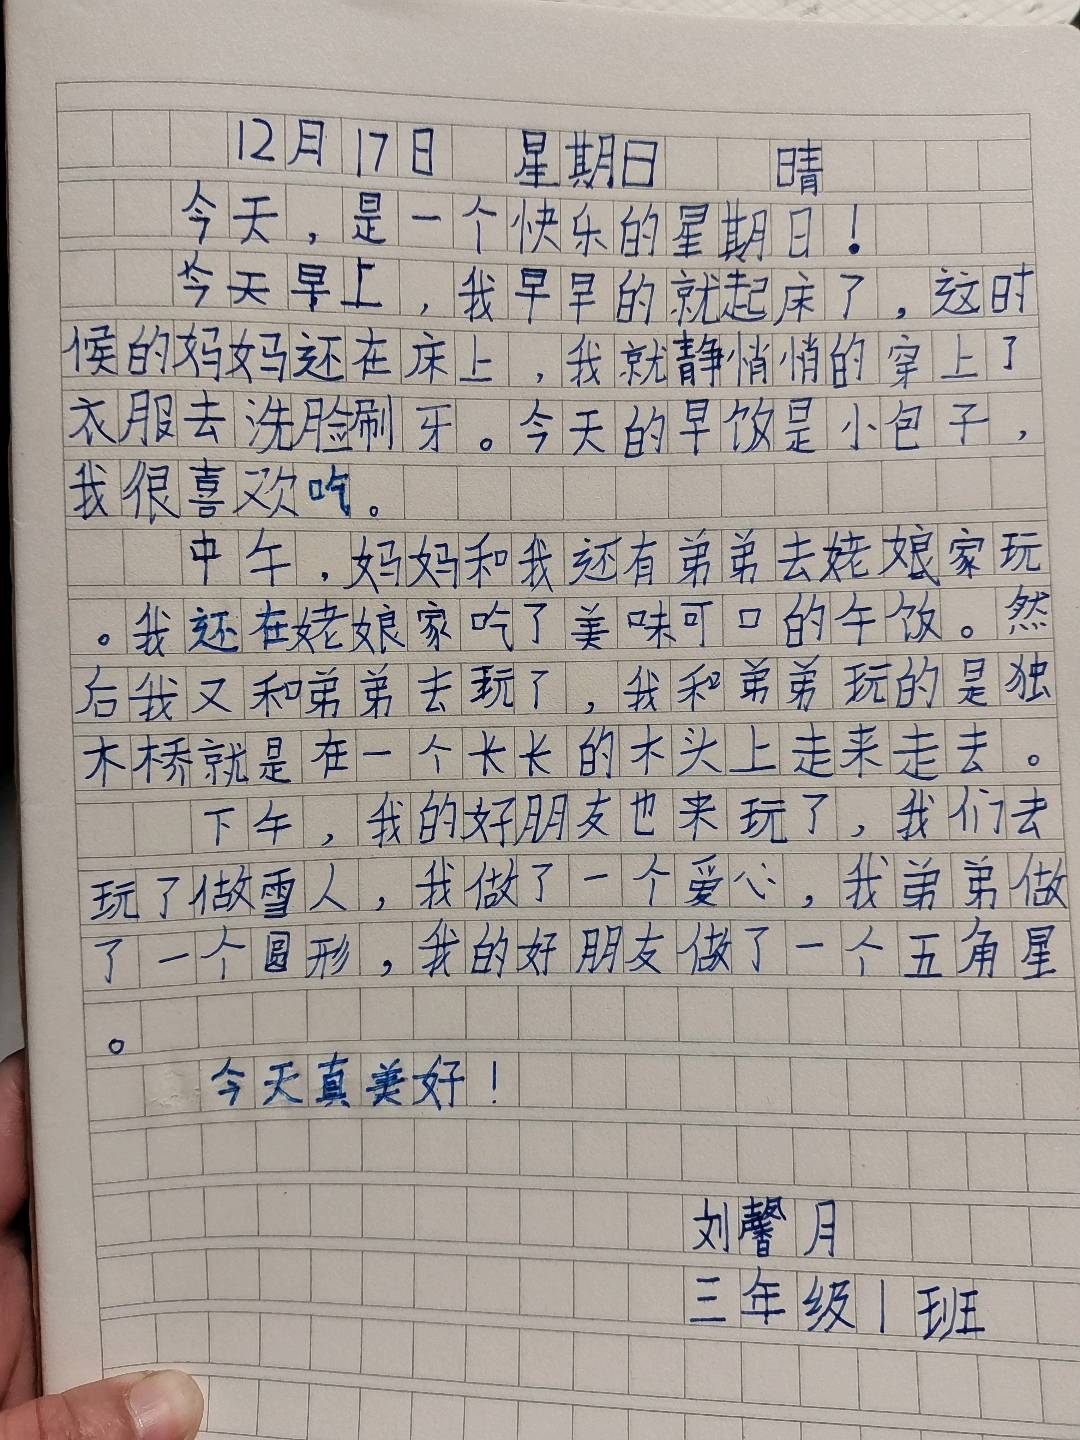 12月17日 星期日 晴
今天，是一个快乐的星期日！
今天早上，我早早的就起床了，这时
候的妈妈还在床上，我就静悄悄的穿上了
衣服去洗脸刷牙。今天的早饭是小包子，
我很喜欢吃。
中午，妈妈和我还有弟弟去姥娘家玩
。我还在姥娘家吃了美味可口的午饭。然
后我又和弟弟去玩了，我和弟弟玩的是独
木桥就是在一个长长的木头上走来走去。
下午，我的好朋友也来玩了，我们去
玩了做雪人，我做了一个爱心，我弟弟做
了一个圆形，我的好朋友做了一个五角星
。
今天真美好！
刘馨月
三年级1班